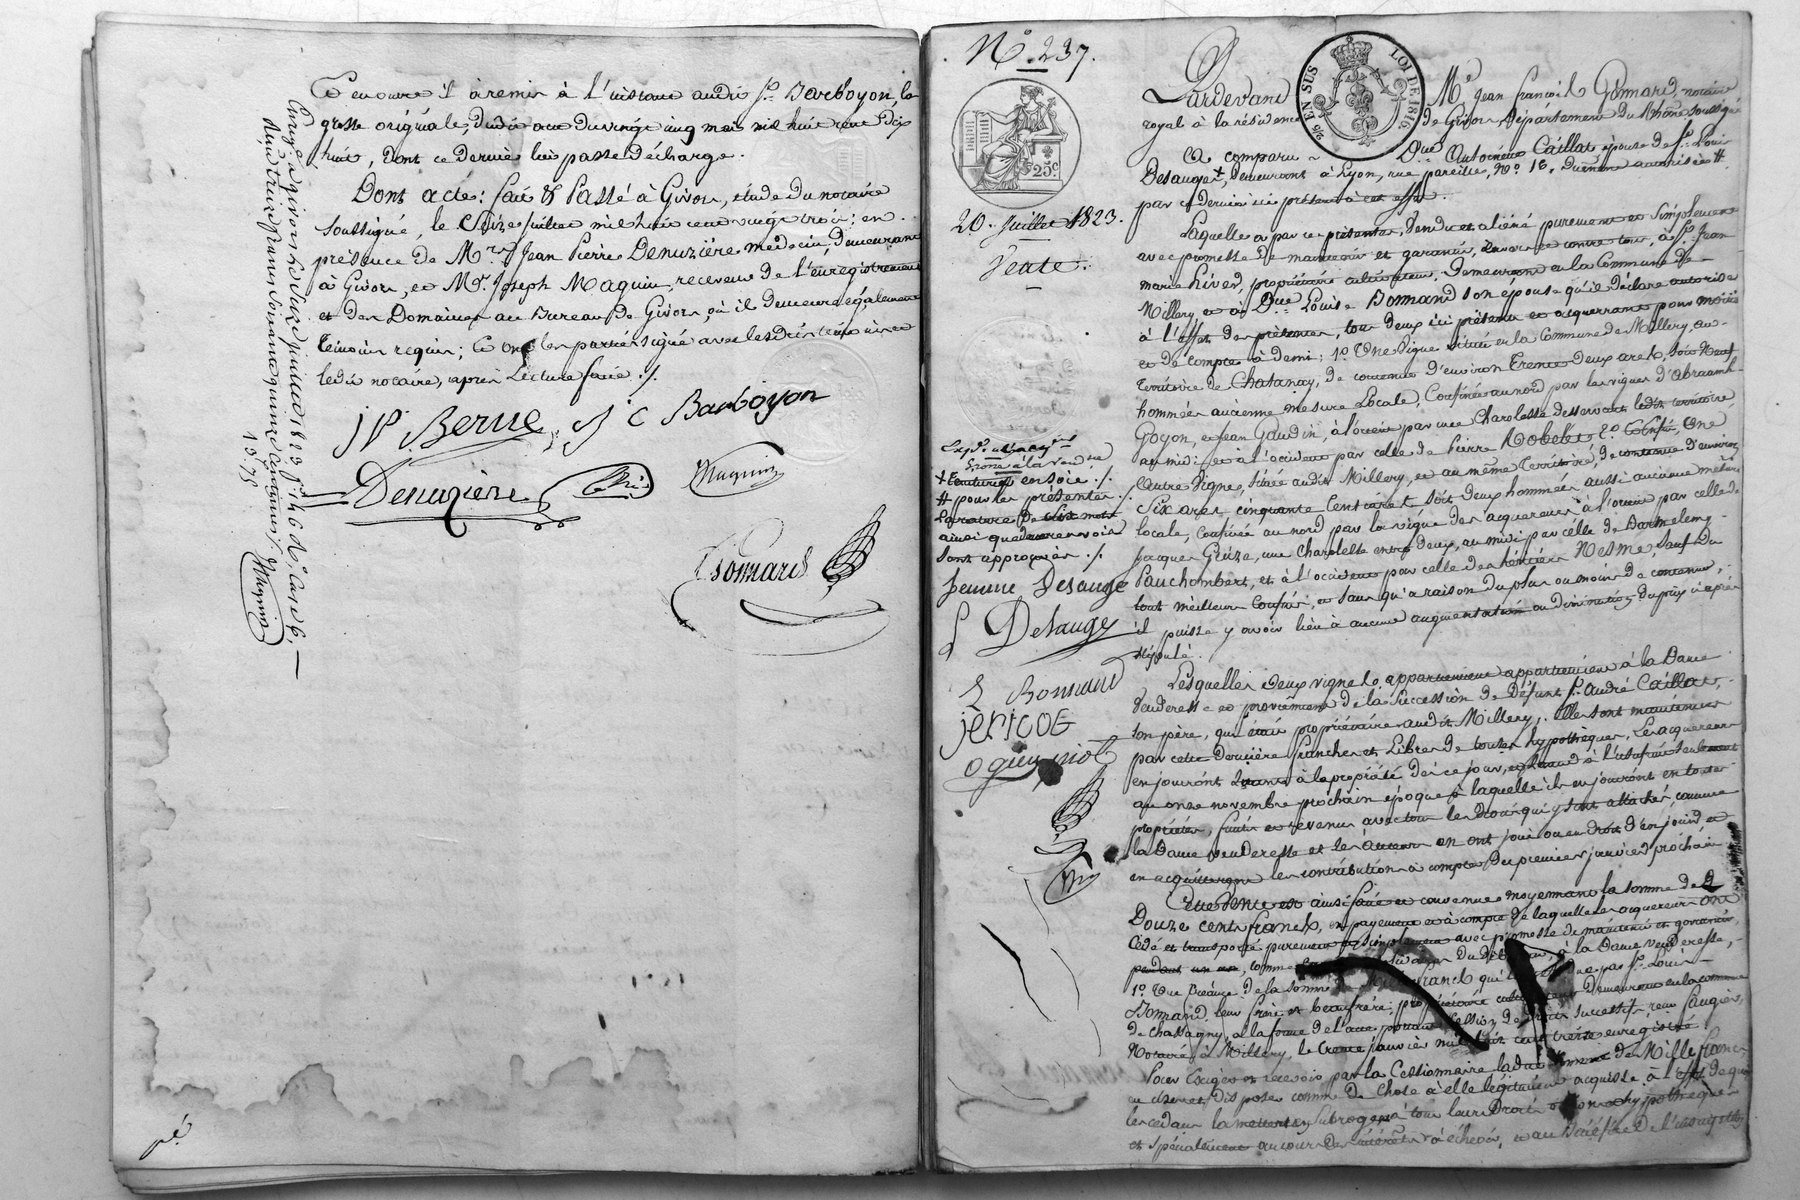 Ce en outre il a remis à l'instant audit Sr. Barboyon, la
grosse originale, dudit acte du vingt cinq mai mil huit cent dix
huit, dont ce dernier lui passe décharge.
Dont acte : fait & Passé à Givors, étude du notaire
soussigné, le juillet mil huit cent vingt trois ; en
présence de Mrs. Jean Pierre Denuzière médecin demeurant
à Givors, et Mr. Joseph Maguin, receveur de l'enregistrement
et des Domaines au Bureau de Givors, où il demeure également
témoins requis ; et ont les parties signé avec lesdits témoins et
ledit notaire, après Lecture faite ./.
JP. Berne J C Barboyon
Denuzière Maguin
Gonnard
Enregé à givors le juillet 1823, fo. 146 Vo. Case 6,
reçu
Maguin
No. 237.
25 EN SUS LOI DE 1816
25c
20. Juillet 1823.
Vente.
Pardevant Me. Jean françois Gonnard, notaire
royal à la résidence de Givors Département du Rhône soussigné
A comparu Due. Antoinette Caillat épouse de Sr. Louis
Desauge +, demeurant à Lyon, rue pareille, No. 16, dûment autorisée #
par ce dernier ici présent à cet effet.
Laquelle a par ces présentes, vendu et aliéné purement et simplement
avec promesse de maintenir et garantir, envers et contre tous, à Sr. Jean
marie hiver, propriétaire cultivateur, demeurant en la Commune de
Millery et à Due. Louise Bonnand son épouse qu'il déclare autoriser
à l'effet des présentes, tous deux ici présens et acquerrant pour moitié
et de compte à demi : 1o. Une Vigne située en la Commune de Millery, au
territoire de Chatanay, de contenue d'environ trente deux ares, soit Neuf
hommées ancienne mesure Locale, Confinée au nord par les vignes d'Abraham
Goyon, et Jean Gaudin, à l'orient par une Charolesse desservant ledit territoire
au midi et à l'occident par celle de Pierre Robelet 2o. Enfin, Une
Autre Vigne, située audit Millery, et au même territoire, de contenue d'environ
Six ares cinquante Centiares soit deux hommées aussi ancienne mesure
locale, Confinée au nord par la vigne des acquereurs à l'orient par celle de
Jacques Grize, une Charolesse entre deux, au midi par celle de Barthelemy
Pauchombert, et à l'occident par celle des héritiers Nesme, sauf du
tout meilleurs confins, et sans qu'à raison du plus ou moins de contenue,
il puisse y avoir lieu à aucune augmentation ou diminution du prix ci après
stipulé.
Lesquelles deux vignes appartiennent à la Dame
venderesse et proviennent de la Succession de Défunt Sr. André Caillat,
son père, qui était propriétaire audit Millery. Elles sont maintenues
par cette dernière franches et libres de toutes hypothèques, les acquereurs
en jouiront quant à la propriété dès ce jour, et quant à l'usufruit seulement
au onze novembre prochain époque à laquelle ils en jouiront en toute
propriété, fruits et revenus avec tous les droits qui y sont attachés, comme
la Dame venderesse et ses auteurs en ont joui ou eu droit d'en jouir et
en acquitteront les contributions à compter du premier janvier prochain
Cette Vente est ainsi faite et convenue moyennant la somme de
Douze cents francs, en payement et à compte de laquelle les acquereurs ont
Cédé et transporté purement et simplement avec promesse de maintenir et garantir,
pendant un an, comme du à la Dame venderesse,
1o. Une Créance de la somme de francs qui par Sr. Louis
Bonnand, leur frère et beau frère, propriétaire demeurant en la commune
de Chassagny, à la forme de l'acte portant cession de droits successifs, reçu Laugier,
Notaire à Millery, le trente janvier mil huit cent treize enregistré.
Pour Exiger et recevoir par la Cessionnaire ladite somme de Mille francs
en user et disposer comme de Chose à elle légitimement acquise à l'effet de quoi
les cédans la mettent et subrogent à tous leurs Droits hypothèques
et spécialement au cours des intérêts à échoir, et au Bénéfice de l'inscription
Expn. à la venderesse
+ en soie ./.
# pour les présentes ./.
La rature de mots
ainsi que deux renvois
sont approuvés ./.
femme Desauge
L Desauge
L Bonnand
jericoe
oguinot